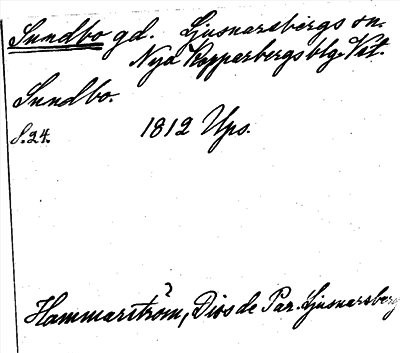 Sundbo gd. Ljusnarsbergs sn.
Nya Kopparbergs blg. Vst.
Sundbo.
S. 24. 1812 Ups.
Hammarström, Diss de Par. Ljusnarsberg